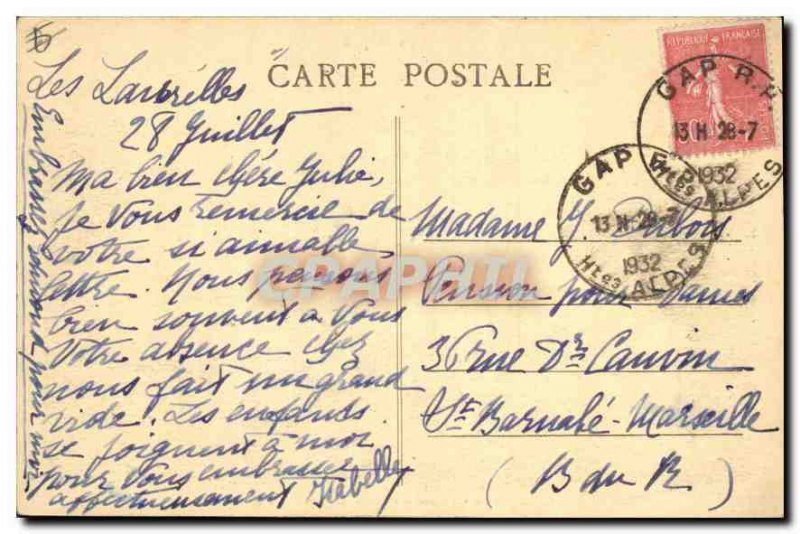 CARTE POSTALE
Les Laurelles
28 Juillet
Ma bien chère Julie,
Je vous remercie de
votre si aimable
lettre. Nous pensons
bien souvent à vous
Votre absence chez
nous fait un grand
vide. Les enfants
se joignent à moi
pour vous embrasser
affectueusement Isabelle
pour moi
REPUBLIQUE FRANÇAISE
GAP R.P.
13 H 28-7
1932
Htes ALPES
GAP
13 H 28-7
1932
Htes ALPES
Madame J. Dubois
Pension pour Dames
36 rue Dr Cauvin
St Barnabé-Marseille
(B du R)
CPAPHIL